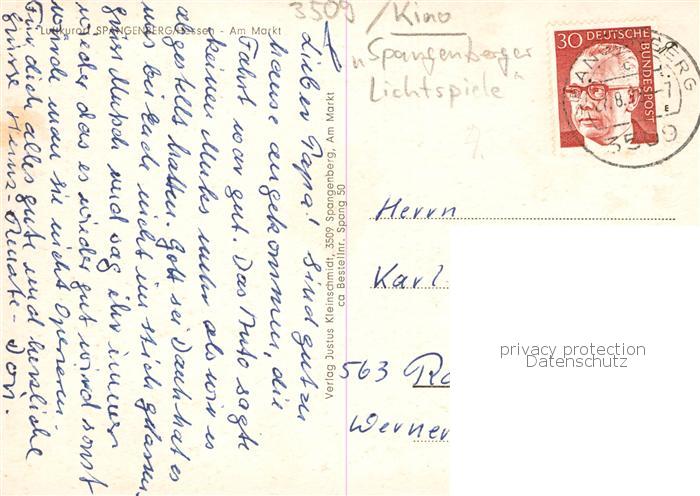 Luftkurort SPANGENBERG/Hessen - Am Markt
3509 / Kino
"Spangenberger
Lichtspiele"
30 DEUTSCHE
BUNDESPOST
3509
Lieber Papa! Sind gut zu
hause angekommen, die
Fahrt war gut. Das Auto sagte
keinen Muks mehr als wir es
abgestellt hatten. Gott sei Dank hat es
uns bei Euch nicht im stich gelassen.
grüss Mutsch und sag ihr immer
wieder das es wieder gut wird sonst
würde man sie nicht Operieren
Für dich alles gute und herzliche
Grüsse Heinz- Renate- Dori.
Verlag Justus Kleinschmidt, 3509 Spangenberg, Am Markt
ca Bestellnr. Spang 50
Herrn
Karl
563
Werner
privacy protection
Datenschutz